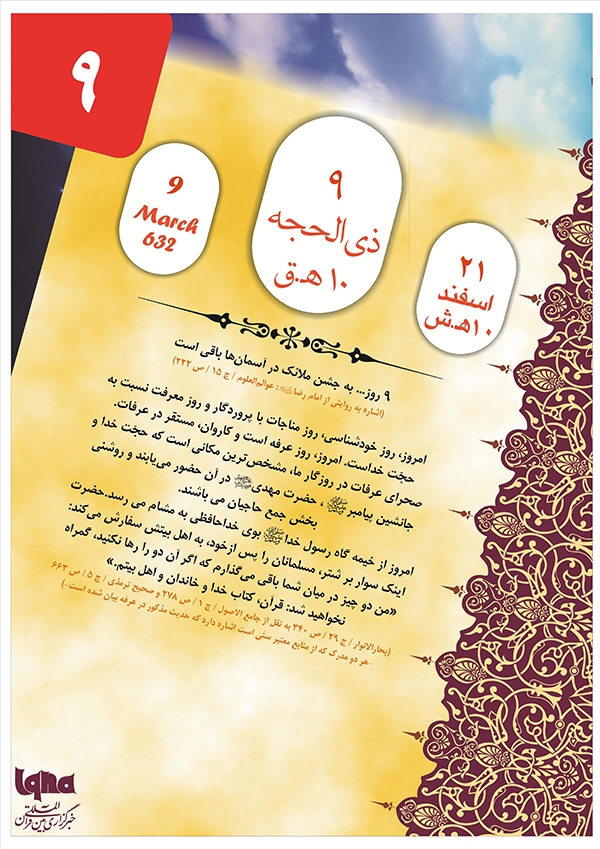 ۹
۹
ذی‌الحجه
۱۰ هـ.ق
9
March
632
۲۱
اسفند
۱۰ هـ.ش
۹ روز... به جشن ملائک در آسمان‌ها باقی است
(اشاره به روایتی از امام رضا: عوالم‌العلوم / ج ۱۵ / ص ۲۲۲)
امروز، روز خودشناسی، روز مناجات با پروردگار و روز معرفت نسبت به
حجّت خداست. امروز، روز عرفه است و کاروان، مستقر در عرفات.
صحرای عرفات در روزگار ما، مشخص‌ترین مکانی است که حجّت خدا و
جانشین پیامبرﷺ، حضرت مهدی در آن حضور می‌یابند و روشنی
بخش جمع حاجیان می باشند.
امروز از خیمه گاه رسول خداﷺ بوی خداحافظی به مشام می رسد.حضرت
اینک سوار بر شتر، مسلمانان را پس ازخود، به اهل بیتش سفارش می‌کند:
«من دو چیز در میان شما باقی می‌گذارم که اگر آن دو را رها نکنید، گمراه
نخواهید شد: قرآن، کتاب خدا و خاندان و اهل بیتم.»
(بحارالانوار / ج ۲۹ / ص ۳۴۰ به نقل از جامع الاصول / ج ۱ / ص ۲۷۸ و صحیح ترمذی / ج ۵ / ص ۶۶۳
-هر دو مدرک که از منابع معتبر سنی است اشاره دارد که حدیث مذکور در عرفه بیان شده است-)
Iqna
خبرگزاری بین المللی قرآن